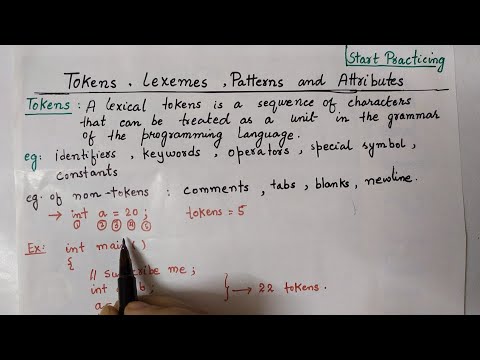 Start Practicing
Tokens, Lexemes, Patterns and Attributes
Tokens : A lexical tokens is a sequence of characters
that can be treated as a unit in the grammar
of the programming language.
eg: identifiers, keywords, operators, special symbol,
constants
eg. of non-tokens : comments, tabs, blanks, newline.
→ int a = 20 ; tokens = 5
① ② ③ ④ ⑤
Ex: int main ( )
{
// me ;
int b ; } → 22 tokens.
a